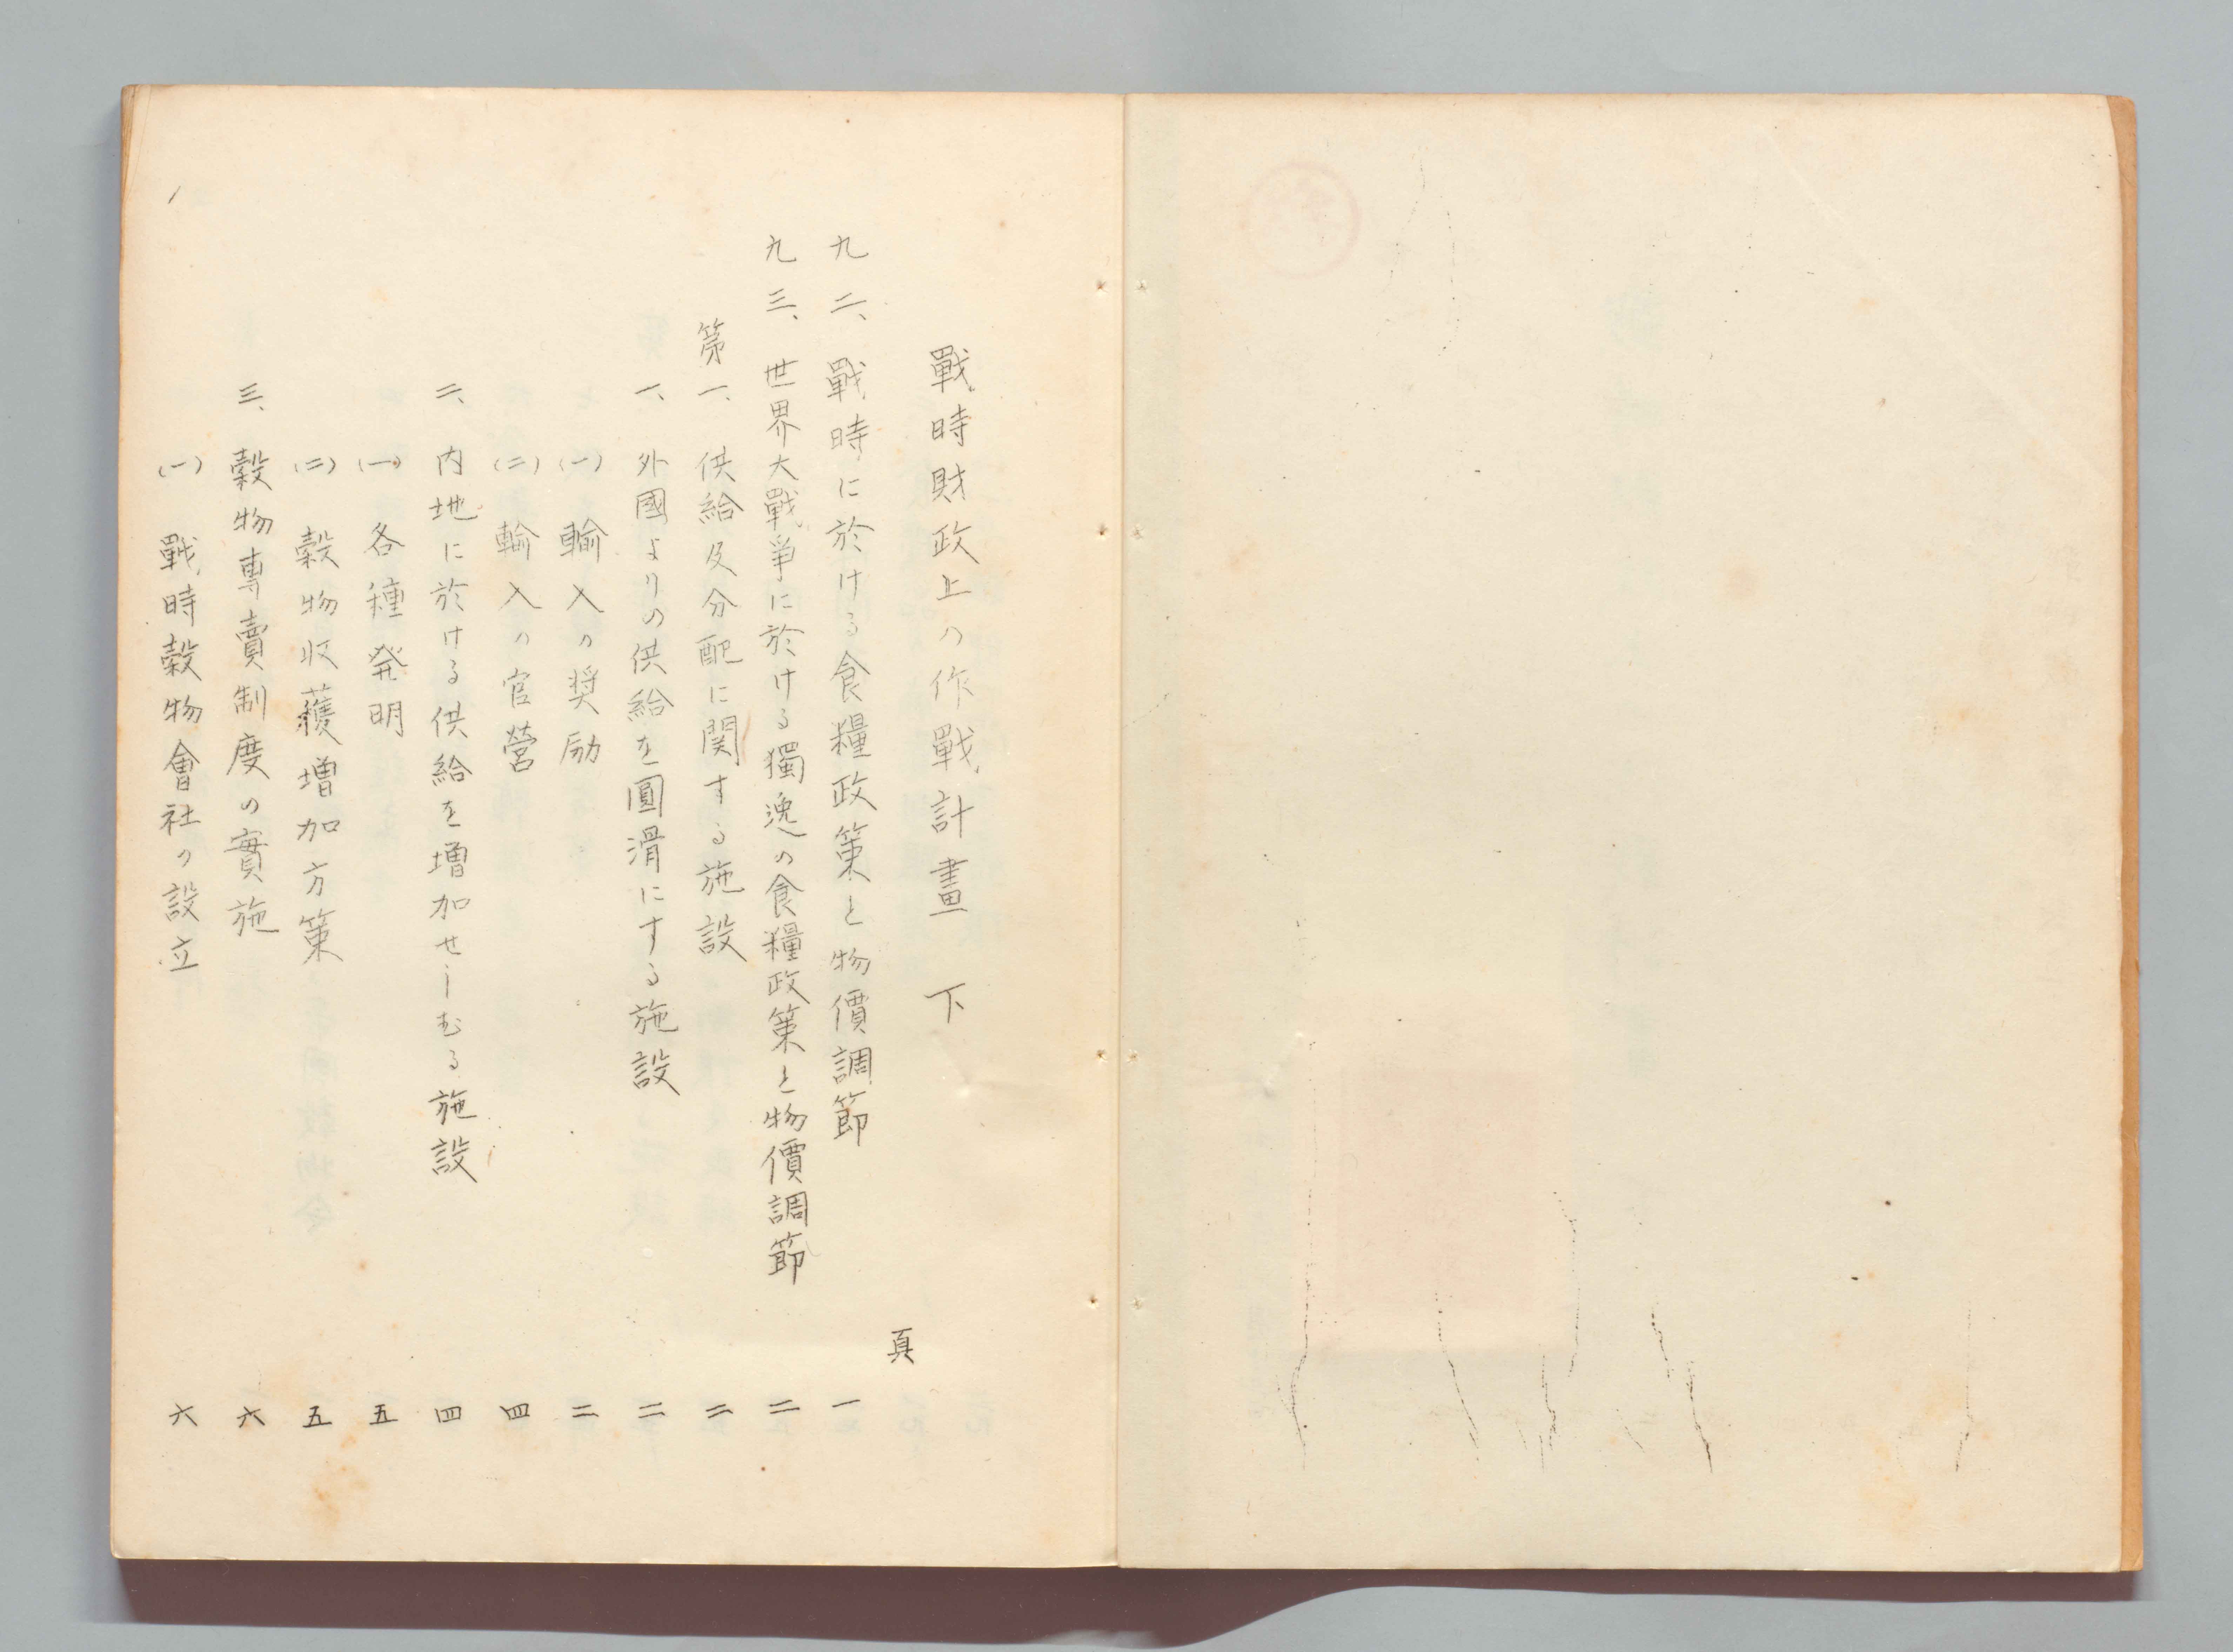 戰時財政上の作戰計畫　下
頁
九二、戰時に於ける食糧政策と物價調節　一
九三、世界大戰爭に於ける獨逸の食糧政策と物價調節　二
第一、供給及分配に関する施設　二
一、外國よりの供給を圓滑にする施設　二
(一)　輸入の奨励　二
(二)　輸入の官營　四
二、内地に於ける供給を増加せしむる施設　四
(一)　各種発明　五
(二)　穀物収穫増加方策　五
三、穀物專賣制度の實施　六
(一)　戰時穀物會社の設立　六